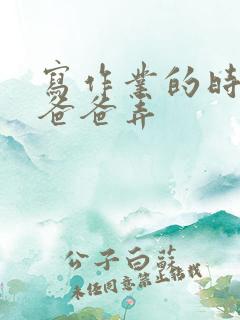 寫作業的時
爸爸弄
公子白蘇
未经同意禁止转载